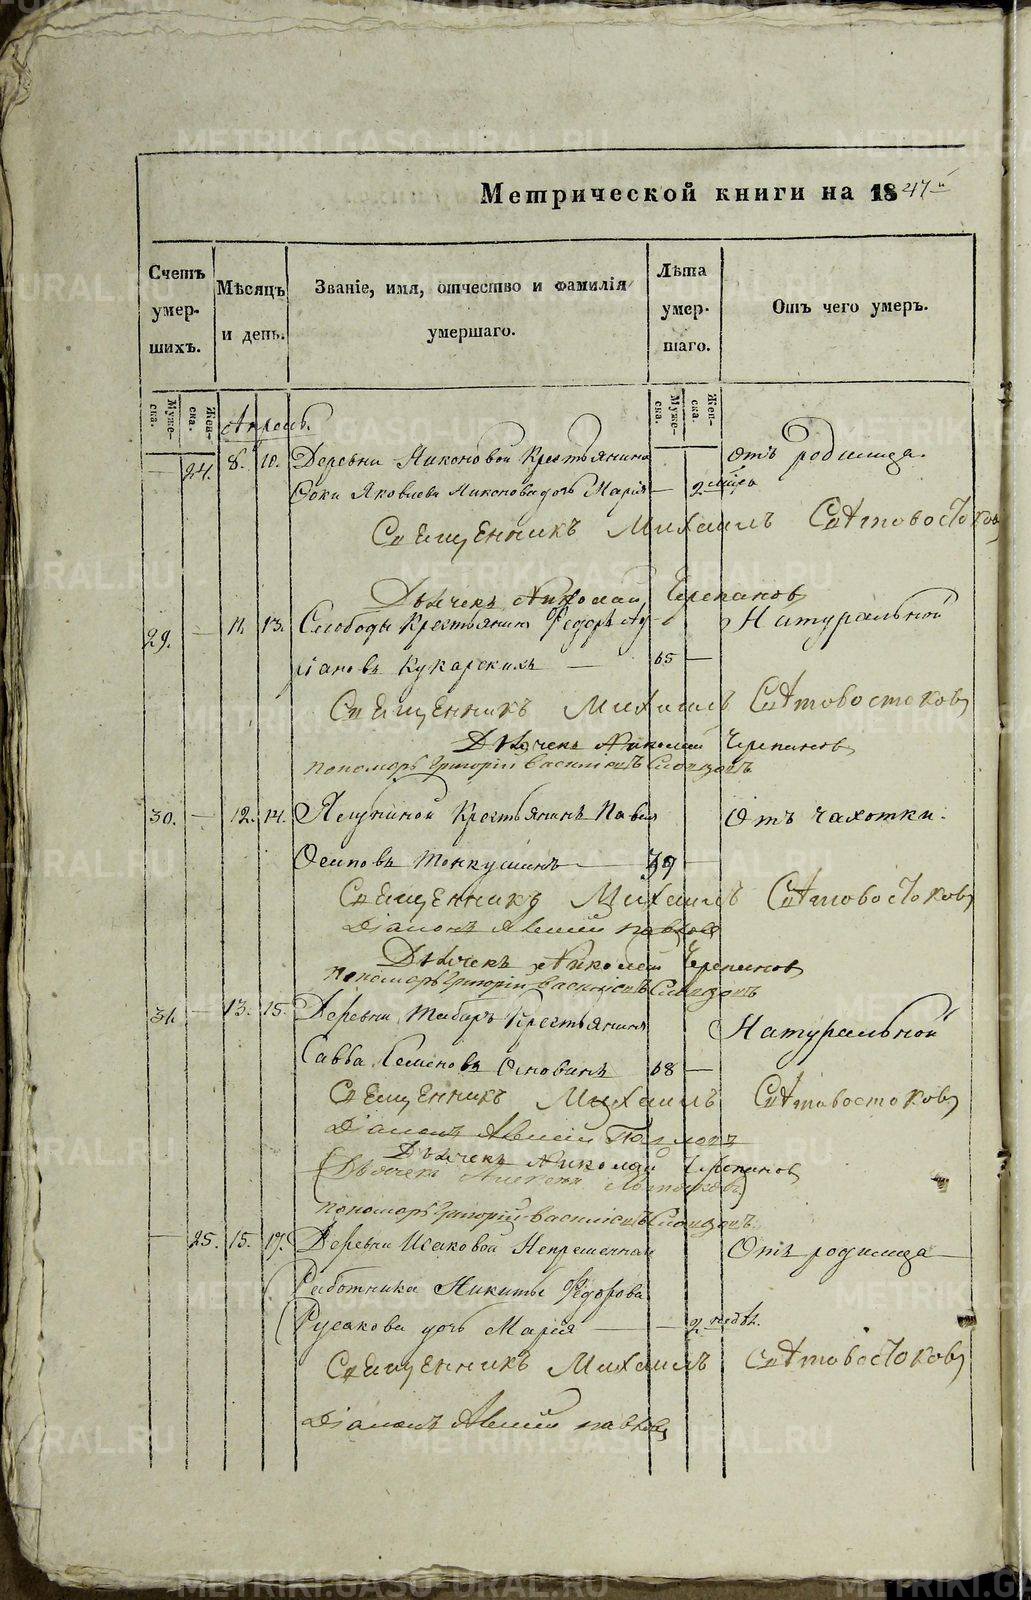 Метрической книги на 1847 й
Счетъ умер-шихъ.
Мѣсяцъ и день.
Званіе, имя, отчество и фамилія умершаго.
Лѣта умер-шаго.
Отъ чего умеръ.
Муже-ска.
Жен-ска.
Муже-ска.
Жен-ска.
Апрель.
— 24. 8. 10. Деревни Никоновой Крестьянина отъ родимца.
Фоки Яковлева Никонова дочь Марія — 2 мѣся
Священникъ Михаилъ Святовостоковъ
Дьячекъ Николай Черепановъ
29. — 11. 13. Слободы Крестьянинъ Федоръ Ад- Натуральной
ріановъ Кукарскихъ — 65 —
Священникъ Михаилъ Святовостоковъ
Дьячекъ Николай Черепановъ
пономарь Григорій Васильевъ Словцовъ
30. — 12. 14. Крестьянинъ Павелъ Отъ чахотки.
Осиповъ — 39 —
Священникъ Михаилъ Святовостоковъ
Діаконъ
Дьячекъ Николай Черепановъ
пономарь Григорій Васильевъ Словцовъ
31. — 13. 15. Деревни Крестьянинъ Натуральной
Савва Семеновъ 68 —
Священникъ Михаилъ Святовостоковъ
Діаконъ
Дьячекъ Николай Черепановъ
(Дьячекъ
пономарь Григорій Васильевъ Словцовъ
— 25. 15. 17. Деревни Исаковой Непременнаго Отъ родимца
Работника Никиты Федорова
Русакова дочь Марія — — 2 недѣл.
Священникъ Михаилъ Святовостоковъ
Діаконъ
METRIKI.GASO-URAL.RU